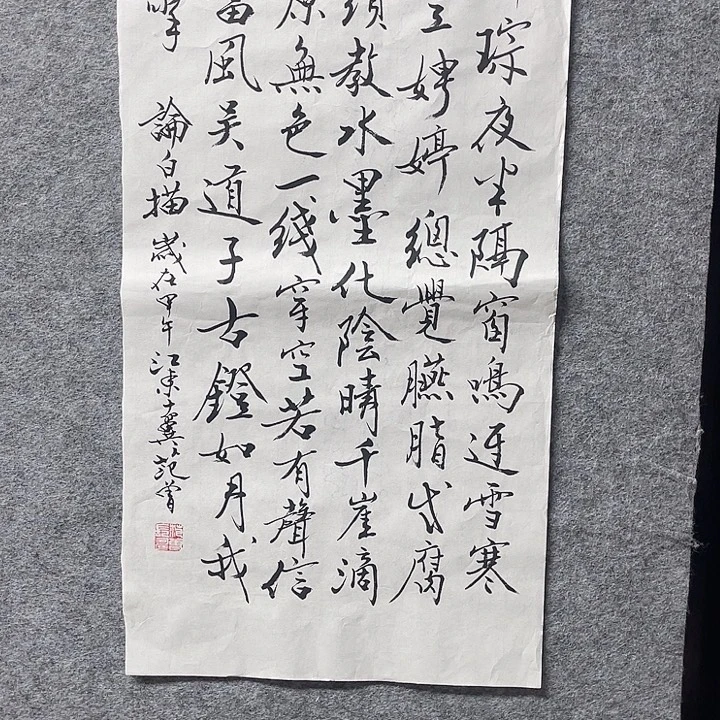 琮夜半隔窗鳴迓雪寒
立娉婷總覺臙脂成腐
須教水墨化陰晴千崖滴
原無色一线穿空若有聲信
當風吳道子古鐙如月我
擎 論白描 歲在甲午 江東十翼范曾